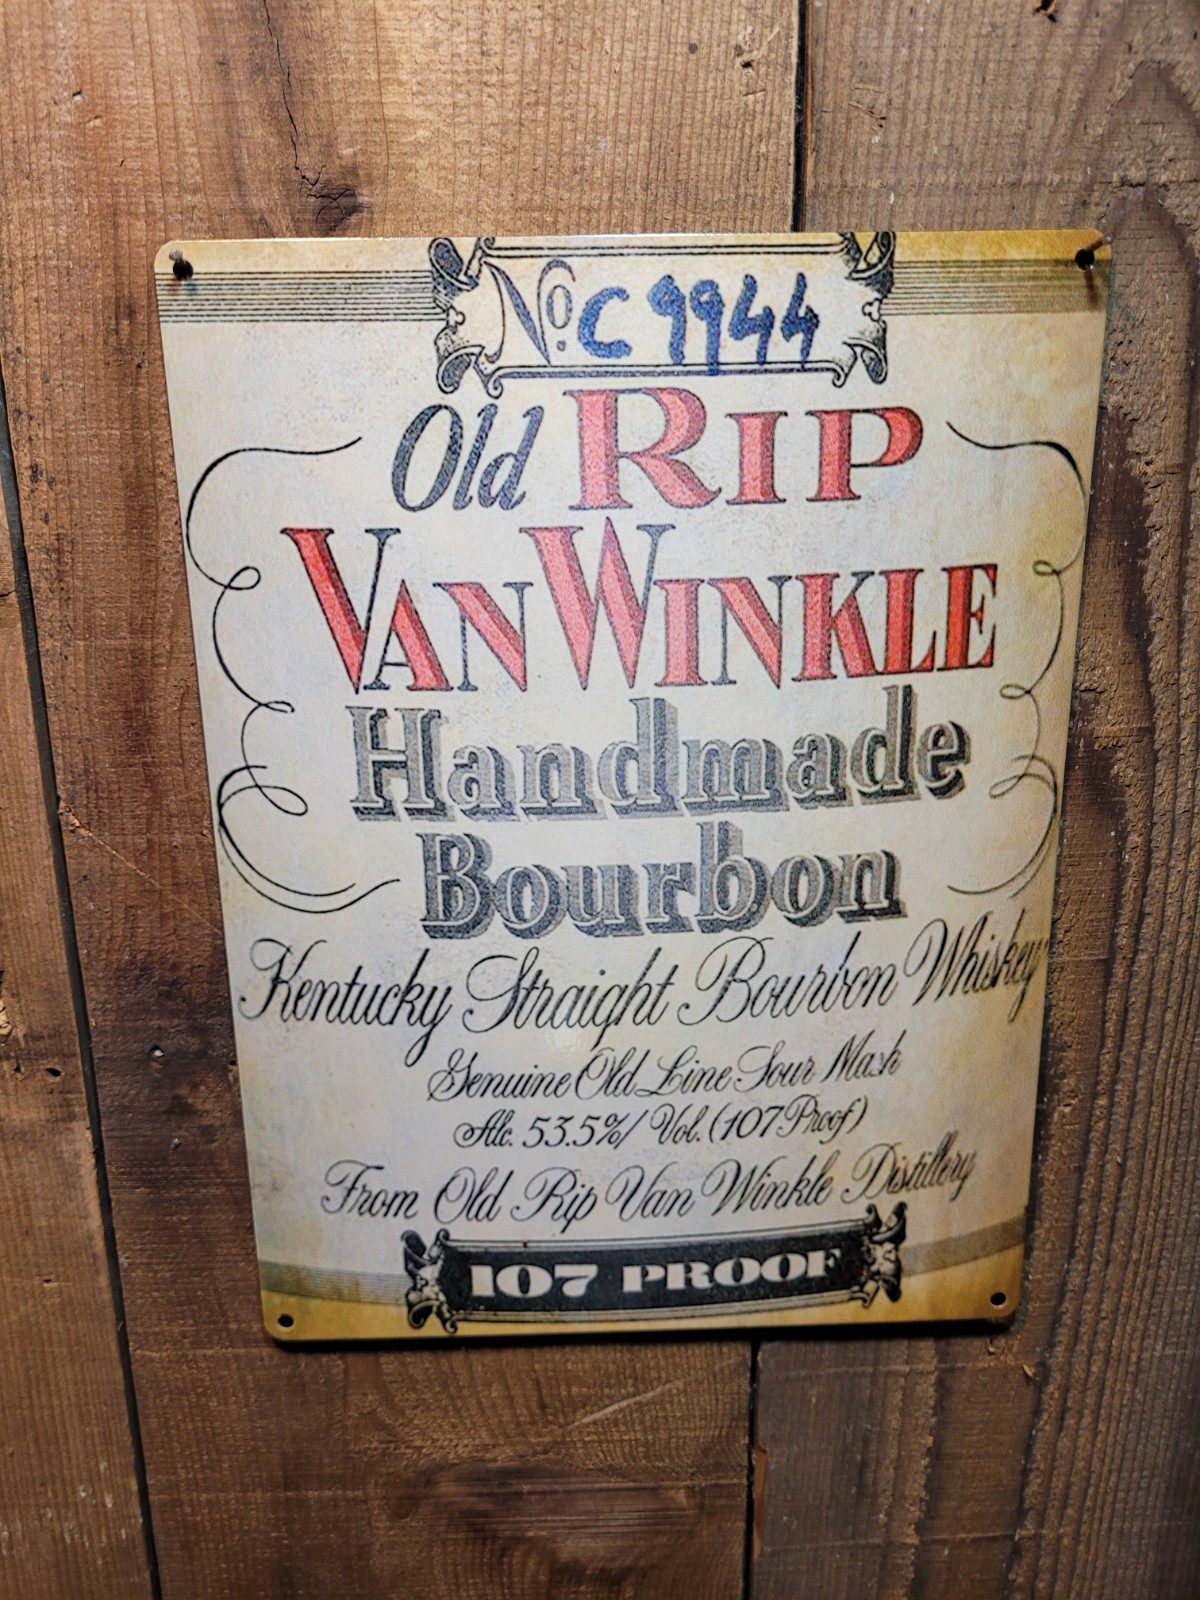 No. C 9944
Old RIP
VAN WINKLE
Handmade
Bourbon
Kentucky Straight Bourbon Whiskey
Genuine Old Line Sour Mash
Alc. 53.5%/ Vol. (107 Proof)
From Old Rip Van Winkle Distillery
107 PROOF